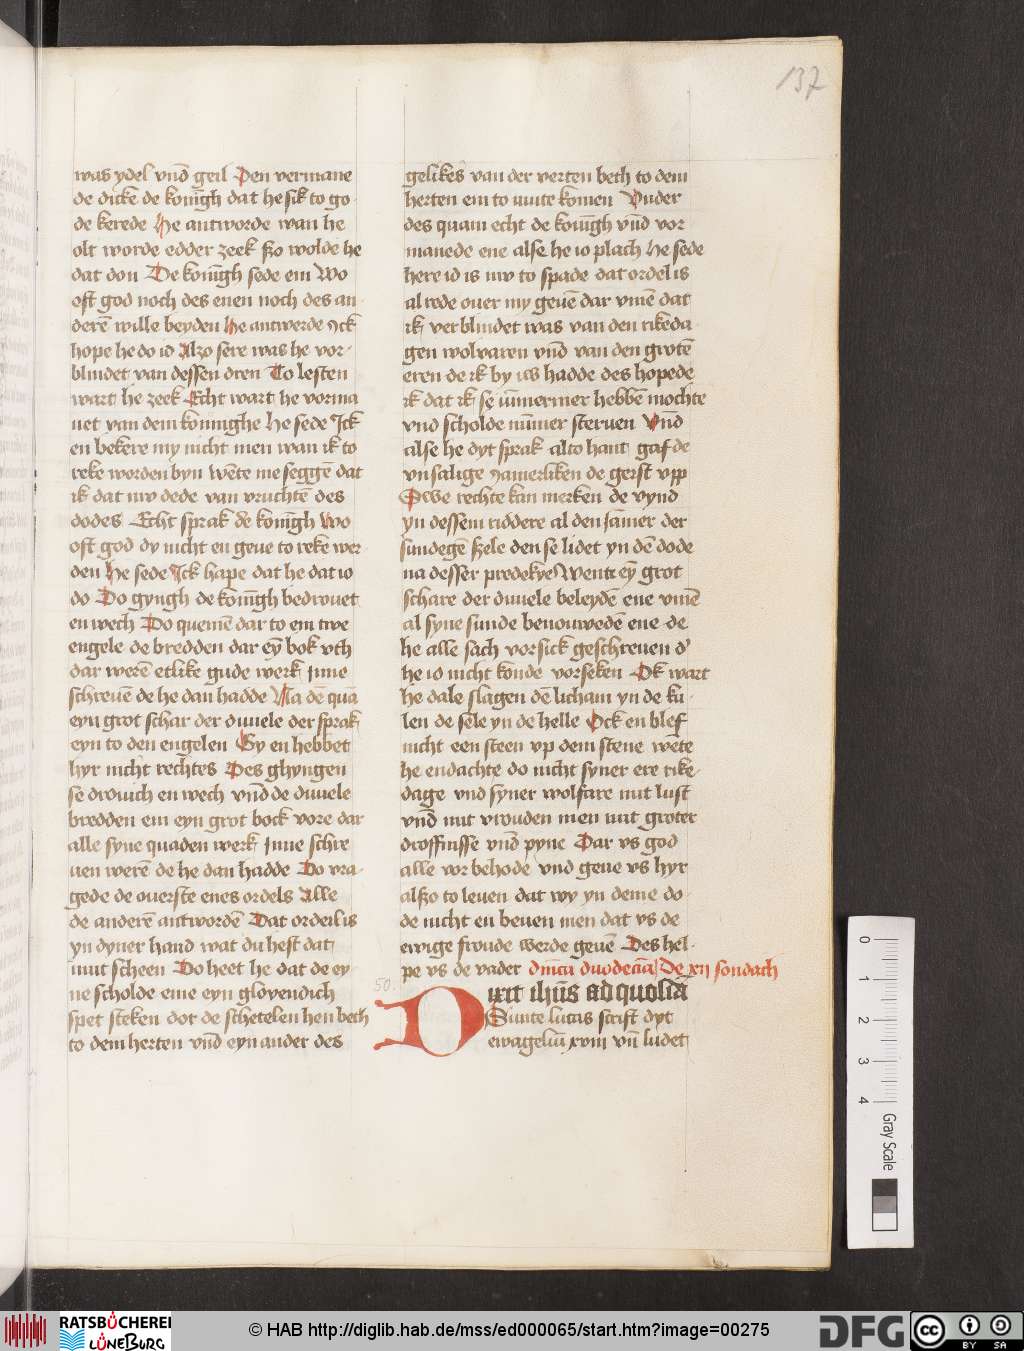 137
was ydel vnd̄ geil Den vermane
de dicke de konīgh dat he sik to go
de kerede He antworde wan he
olt worde edder zeek szo wolde he
dat don De konīgh sede em Wo
oft god noch des enen noch des an
derē wille beyden he antwerde Jck
hope he do id Alzo sere was he vor
blindet van dessen dren To lesten
wart he zeek Echt wart he vorma
net van dem konnighe He sede Jck
en bekere my nicht men wan ik to
reke worden byn Wēte me seggē dat
ik dat nw dede van vruchtē des
dodes Echt sprak de konīgh wo
oft god dy nicht en geue to reke wer
den He sede Jck hape dat he dat io
do Do gyngh de konīgh bedrouet
en wech Do quemē dar to em twe
engele de bredden dar eȳ bok vth
dar werē etlike gude werk inne
schreuē de he dan hadde Na dē quā
eyn grot schar der duuele der sprak
eyn to den engelen Gy en hebbet
hyr nicht rechtes Des ghyngen
se drouich en wech vnd̄ de duuele
bredden em eyn grot bock vore dar
alle syne quaden werk inne schre
uen werē de he dan hadde Do vra
gede de ouerste enes ordels Alle
de anderē antwordē Dat ordeil is
yn dyner hand wat du hest dat
mut scheen Do heet he dat de ey
ne scholde eme eyn gloyendich
spet steken dor de schetelen hen beth
to dem herten vnd̄ eyn ander des
gelikes van der verten beth to dem
herten em to mute komen Vnder
des quam echt de konīgh vnd̄ vor
manede ene alse he io plach He sede
here id is nw to spade dat ordel is
al rede ouer my geuē dar vmē dat
ik verblindet was van den rikeda
gen wolvaren vnd̄ van den grotē
eren de ik by iw hadde des hopede
ik dat ik se ūmermer hebbē mochte
vnd scholde nūmer steruen Vnd̄
alse he dyt sprak alto hant gaf de
vnsalige Jamerliken de gerst vpp
Swe rechte kan merken de vynd
yn dessem riddere al den Jāmer der
sundegē szele den se lidet yn dē dode
na desser predekye Wente eȳ grot
schare der duuele beleydē ene vmē
al syne sunde benouwedē ene de
he alle sach vor sick geschreuen d'
he io nicht konde vorseken Ok wart
he dale slagen dē licham yn de ku
len de sele yn de helle Ock en blef
nicht een steen vp dem stene wēte
he endachte do nicht syner ere rike
dage vnd syner wolfare mit lust
vnd̄ mit vrouden men mit groter
droffnisse vnd̄ pyne Dar vs god
alle vor behode vnd geue vs hyr
alszo to leuen dat wy yn deme do
de nicht en beuen men dat vs de
ewige froude werde geuē Des hel
pe vs de vader dn̄ica duodecīa De xij sondach
50.
Dixit ih̄us ad quosdā
Sunte lucas scrift dyt
ewageliū xviij vn̄ ludet
0
1
2
3
4
Gray Scale
RATSBÜCHEREI
LÜNEBURG
© HAB http://diglib.hab.de/mss/ed000065/start.htm?image=00275
DFG
cc
BY
SA